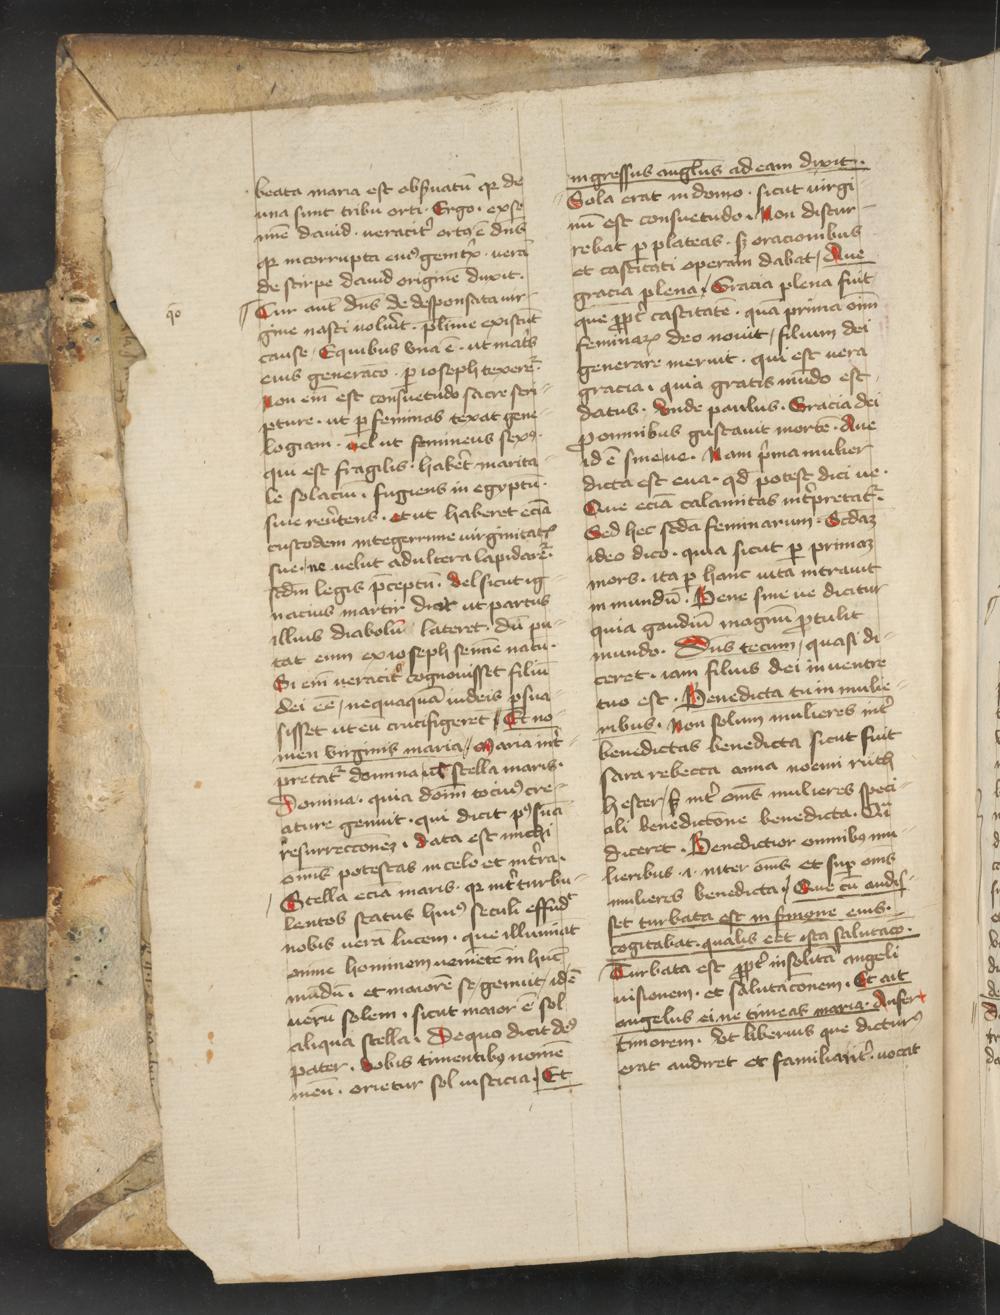 beata maria est obẜuatū qꝛ de
una sunt tribu orti · Ergo · ex se
mīe dauid · veracit᷑ ortꝰ ē dn̄s
qꝛ incorrupta eiꝰ genit᷑x · verā
de stirpe dauid originē duxit ·
qō
Cur aut̄ dn̄s de desponsata vir-
gine nasci voluit · plime existūt
cause · Equibus vna ē · ut mat᷑s
eius generaco · ꝑ ioseph texeret᷑
Non em̄ est consuetudo sacre scri-
pture · ut ꝑ feminas texat gene-
logiam · vel ut femineus sexꝰ ·
qui est fragilis · habet᷑ marita-
le solaciū · fugiens in egyptū ·
siue reu᷑tens · et ut haberet eciā
custodem integerrime virginitatꝭ
sue · ne velut adultera lapidaret᷑
scdm legis p̄ceptū · vel sicut ig-
nacius martir dicit ut partus
illius diabolū lateret · dū pu-
tat eum ex ioseph semīe natū ·
Si em̄ veracit᷑ cognouisset filiū
dei eē / nequaquā iudeis ꝑsua-
sisset ut eū crucifigeret / Et no-
men virginis maria / Maria int᷑-
pretat᷑ domina ul̄ stella maris ·
Domina · quia dom̄ tociꝰ cre-
ature genuit · qui dicit pꝰ suā
resurrecconeꝫ · Data est michi
om̄is potestas in celo et in t᷑ra ·
Stella eciā maris · qꝛ int᷑ turbu-
lentos status huiꝰ seculi effudit
nobis verā lucem · que illumīat
omne hominem venīete in huc̄
mūdū · et maiorē se genuit / id ē
verū solem · sicut maior ē sol
aliqua stella · De quo dicit dꝰ
pater · vobis timentibꝰ nomē
meū · orietur sol iusticia · Et
ingressus angelus ad eam dixit ·
Sola erat in domo · sicut virgi
nū est consuetudo · Non discur-
rebat ꝑ plateas · sꝫ oracionibus
et castitati operam dabat / Aue
gracia plena / Gracia plena fuit
que ꝓpt᷑ castitatē · quā prima om̄
feminaꝝ deo vouit / filium dei
generare meruit · qui est vera
gracia · quia gratis mūdo est
datus · Vnde paulus · Gracia dei
ꝓ omnibus gustauit mortē · Aue
id ē sine ve · Nam p᷑ma mulier
dicta est eua · qd̄ potest dici ve ·
Que eciā calamitas int᷑pretat᷑ ·
Sed hec scd̄a feminarum · Scdaꝫ
ideo dico · quia sicut ꝑ primaꝫ
mors · ita ꝑ hanc vita intrauit
in mundū · Bene sine ve dicitur
quia gaudiū magnū ꝓtulit
mundo · Dn̄s tecum / quasi di-
ceret · iam filius dei in ventre
tuo est · Benedicta tu in mulie-
ribus · Non solum mulieres int᷑
benedictas benedicta sicut fuit
sara rebecca anna noemi ruth
hester / sꝫ int᷑ om̄s mulieres speci-
ali benedictone benedicta ·
diceret · Benedictior omnibꝰ mu-
lieribus · i · inter om̄s et suꝑ om̄s
mulieres benedicta / Que cū audis-
set turbata est in ẜmone eius ·
cogitabat · qualis eēt ista salutaco ·
Turbata est ꝓpt᷑ insolitā angeli
visionem · et salutaconem · Et ait
angelus ei ne timeas maria · Aufert
timorem · Vt liberius que dicturꝰ
erat audiret et familiarit᷑ · vocat